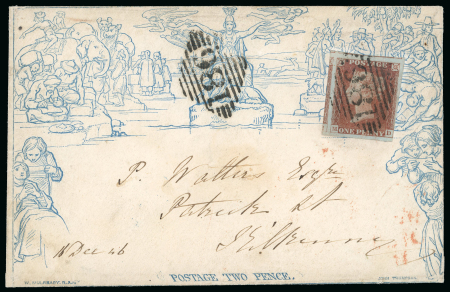 186
186
ONE PENNY
P. Walters Esqre
Patrick St
Kilkenny
16 Dec 46
POSTAGE TWO PENCE.
W. MULREADY. R.A.
JOHN THOMPSON